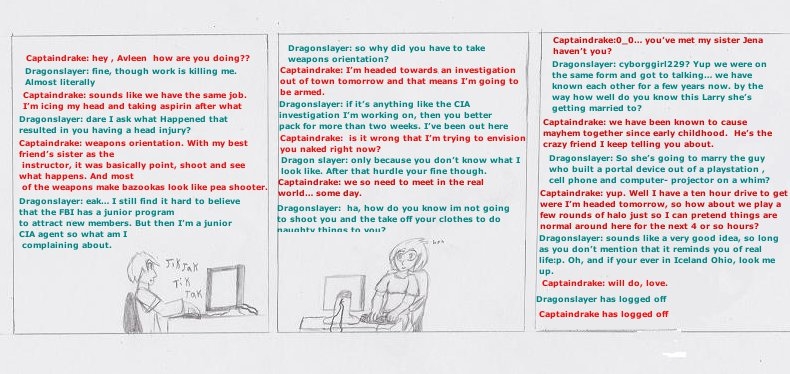 Captaindrake: hey , Avleen  how are you doing??
Dragonslayer: fine, though work is killing me.
Almost literally
Captaindrake: sounds like we have the same job.
I'm icing my head and taking aspirin after what
Dragonslayer: dare I ask what Happened that
resulted in you having a head injury?
Captaindrake: weapons orientation. With my best
friend's sister as the
instructor, it was basically point, shoot and see
what happens. And most
of the weapons make bazookas look like pea shooter.
Dragonslayer: eak... I still find it hard to believe
that the FBI has a junior program
to attract new members. But then I'm a junior
CIA agent so what am I
complaining about.
JiK JaK
TiK
TaK
Dragonslayer: so why did you have to take
weapons orientation?
Captaindrake: I'm headed towards an investigation
out of town tomorrow and that means I'm going to
be armed.
Dragonslayer: if it's anything like the CIA
investigation I'm working on, then you better
pack for more than two weeks. I've been out here
Captaindrake:  is it wrong that I'm trying to envision
you naked right now?
Dragon slayer: only because you don't know what I
look like. After that hurdle your fine though.
Captaindrake: we so need to meet in the real
world... some day.
Dragonslayer:  ha, how do you know im not going
to shoot you and the take off your clothes to do
naughty things to you?
Captaindrake:0_0... you've met my sister Jena
haven't you?
Dragonslayer: cyborggirl229? Yup we were on
the same form and got to talking... we have
known each other for a few years now. by the
way how well do you know this Larry she's
getting married to?
Captaindrake: we have been known to cause
mayhem together since early childhood.  He's the
crazy friend I keep telling you about.
Dragonslayer: So she's going to marry the guy
who built a portal device out of a playstation ,
cell phone and computer- projector on a whim?
Captaindrake: yup. Well I have a ten hour drive to get
were I'm headed tomorrow, so how about we play a
few rounds of halo just so I can pretend things are
normal around here for the next 4 or so hours?
Dragonslayer: sounds like a very good idea, so long
as you don't mention that it reminds you of real
life:p. Oh, and if your ever in Iceland Ohio, look me
up.
Captaindrake: will do, love.
Dragonslayer has logged off
Captaindrake has logged off